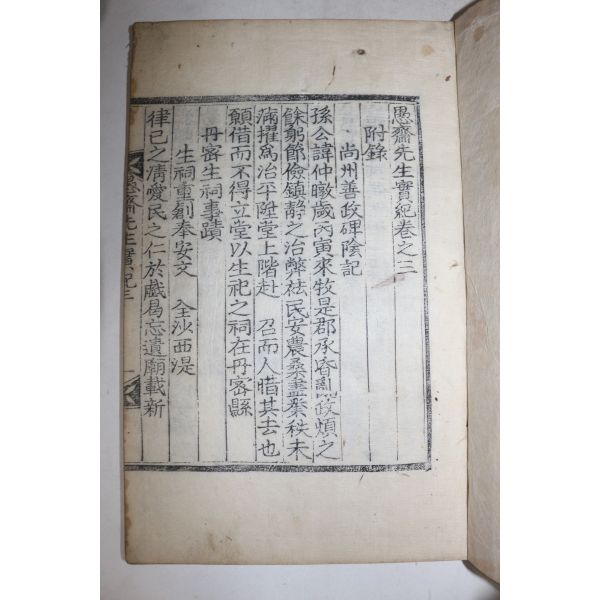 愚齋先生實紀卷之三
附錄
尚州善政碑陰記
孫公諱仲暾歲丙寅來牧是郡承昏亂政煩之
餘躬節儉鎮靜之治弊祛民安農桑盡業秩未
滿擢爲治平陞堂上階赴 召而人惜其去也
願借而不得立堂以生祀之祠在丹密縣
丹密生祠事蹟
生祠重創奉安文 全沙西湜
律己之清愛民之仁於戲曷忘遺廟載新
愚齋先生實紀三